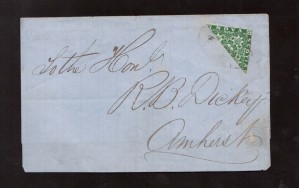 To the Honl.
R. B. Dickey
Amherst